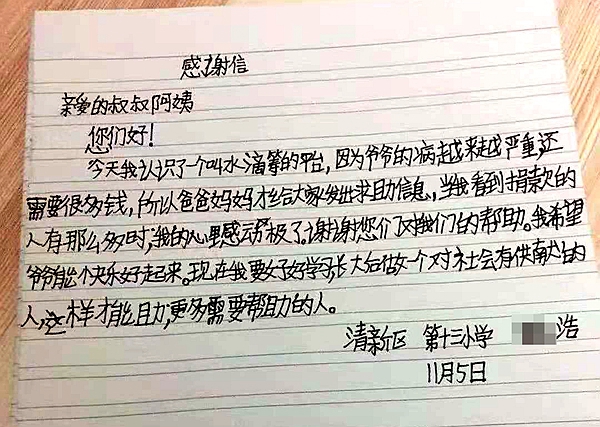 感谢信
亲爱的叔叔阿姨
您们好！
今天我认识了一个叫水滴筹的平台，因为爷爷的病越来越严重，还
需要很多钱，所以爸爸妈妈才给大家发出求助信息，当我看到捐款的
人有那么多时，我的心里感动极了。谢谢您们对我们的帮助。我希望
爷爷能个快乐好起来。现在我要好好学习，长大后做一个对社会有供献的
人，这样才能助，更多需要帮助的人。
清新区 第十三小学 浩
11月5日